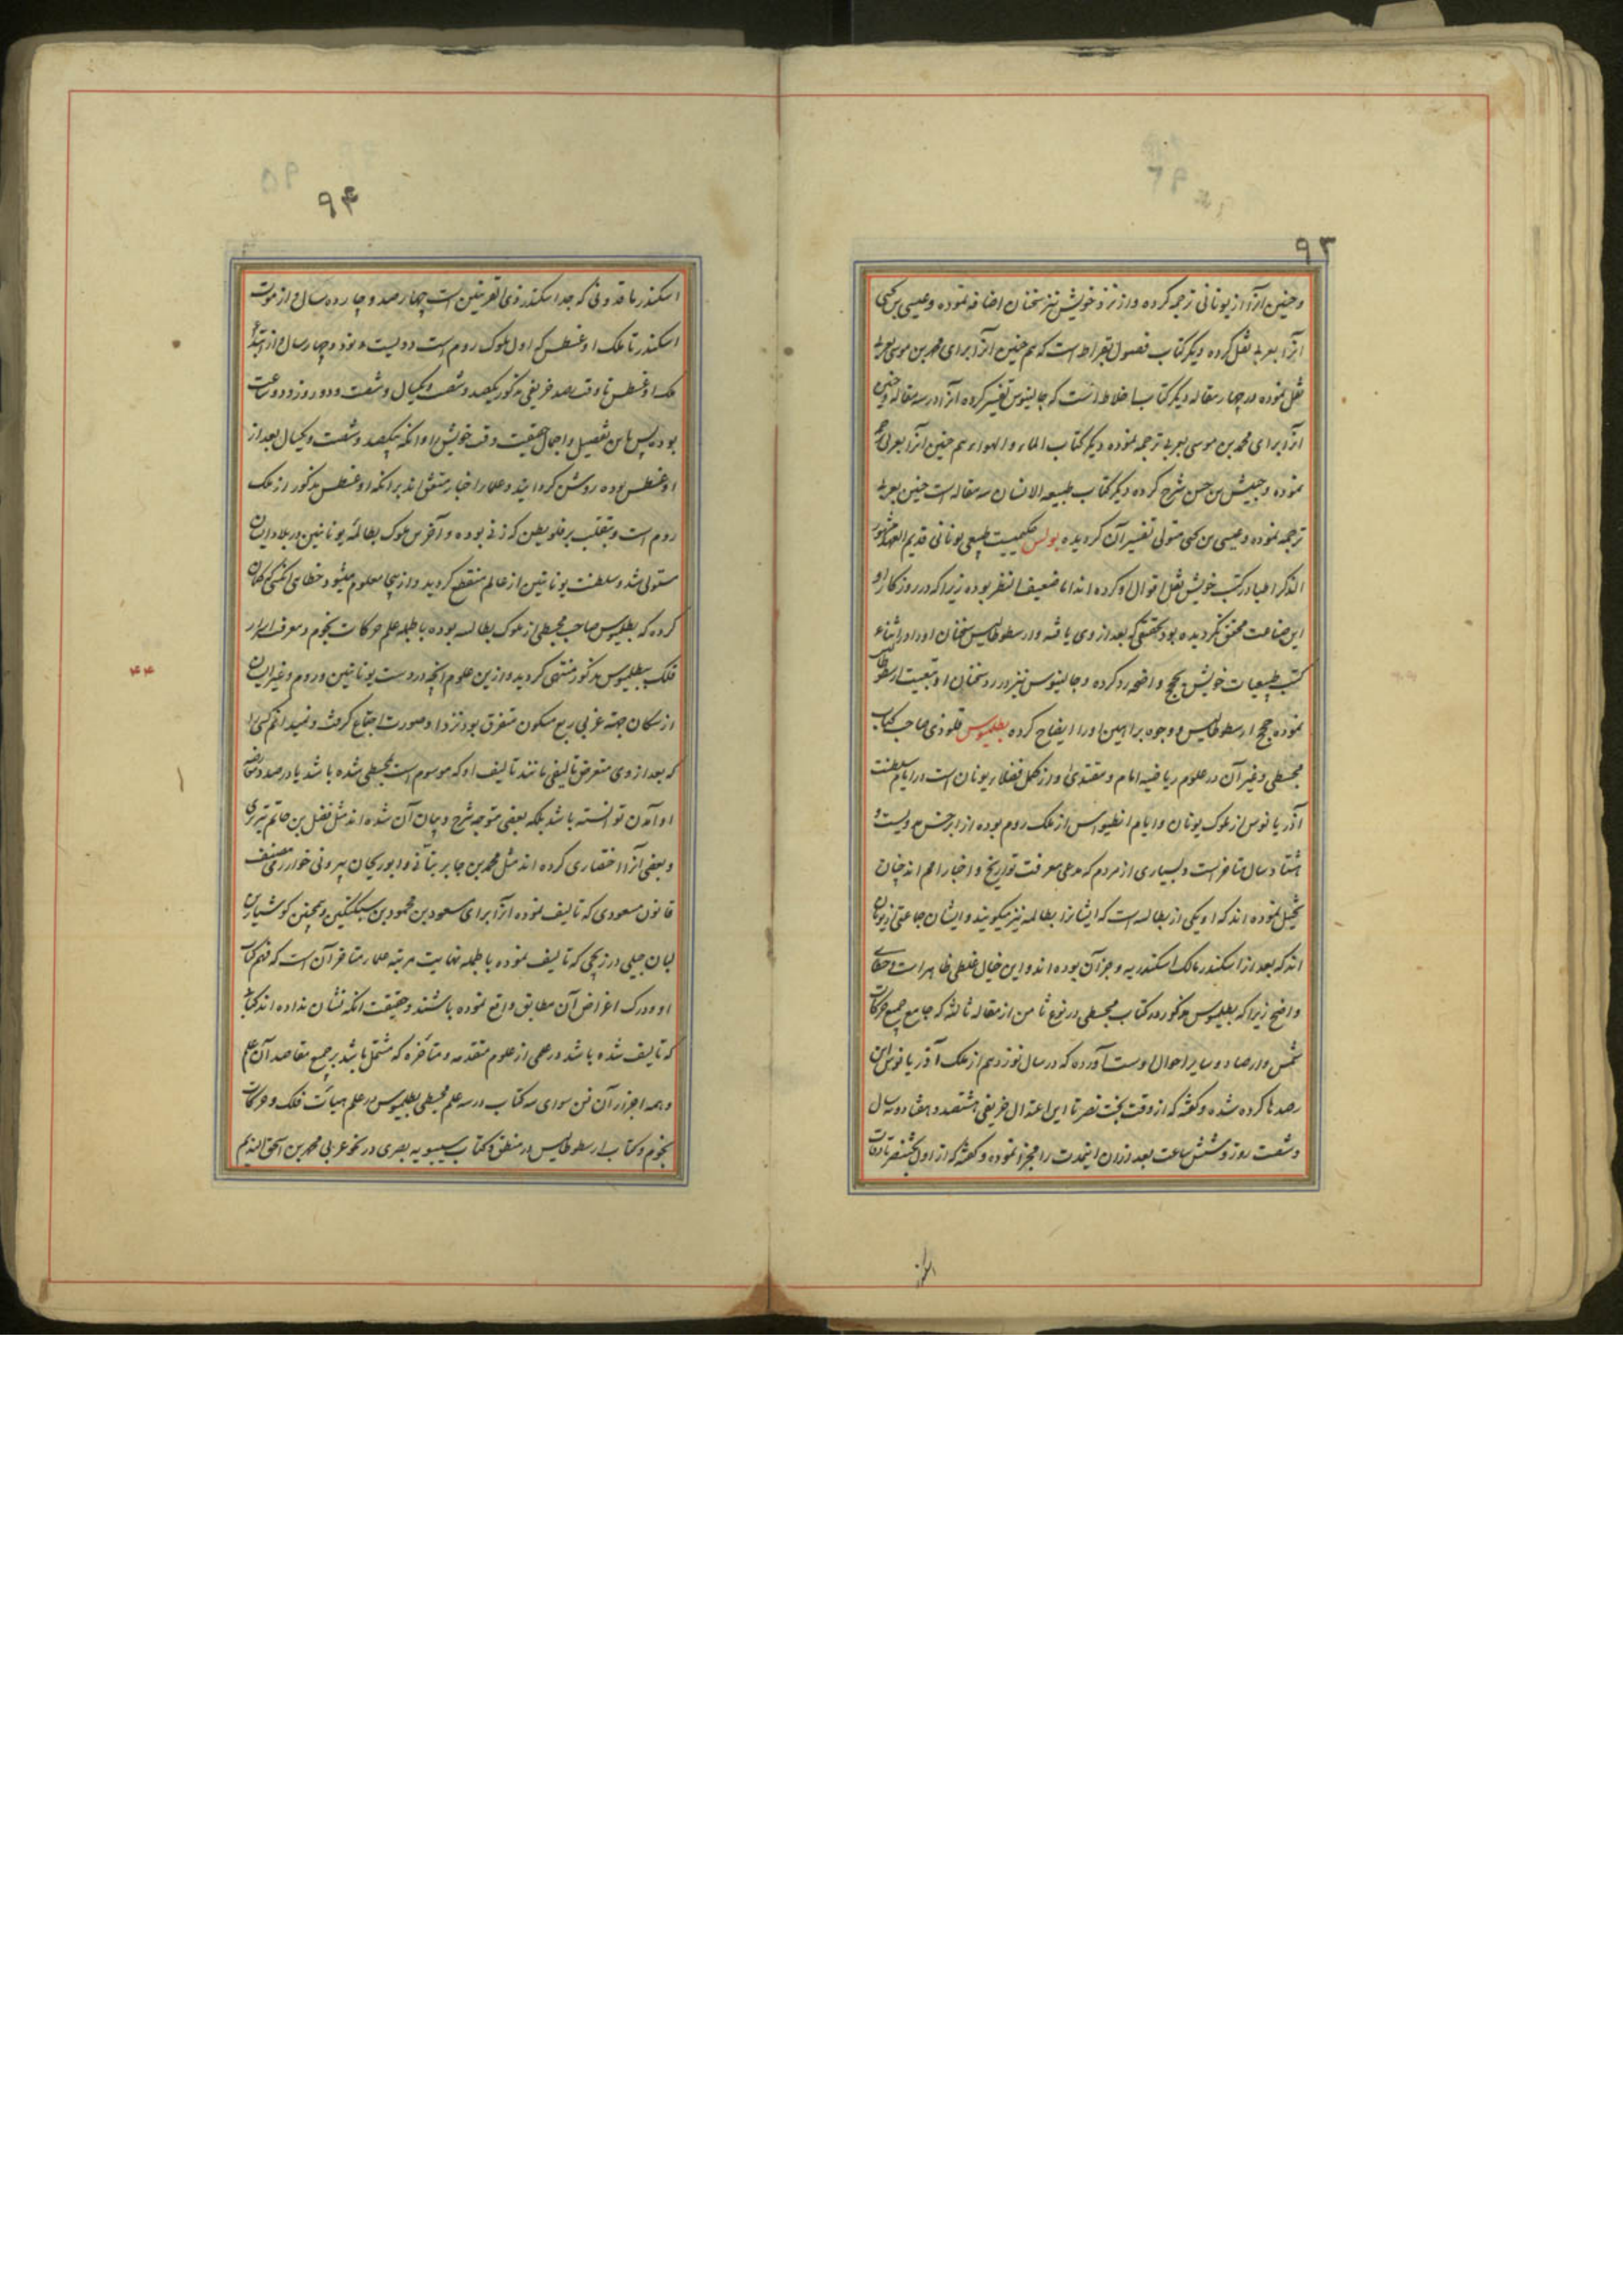 ۹۳
وحنین آنرا از یونانی ترجمه کرده و از نزد خویش نیز سخنان اضافه نموده و عیسی بن یحیی
آنرا بعربی نقل کرده دیگر کتاب فصول بقراط است که هم حنین آنرا برای محمد بن موسی بعربی
نقل نموده در چهار مقاله دیگر کتاب اخلاط است که جالینوس تفسیر کرده آنرا در سه مقاله و حنین
آنرا برای محمد بن موسی بعربی ترجمه نموده دیگر کتاب الماء والهواء هم حنین آنرا بعربی
نموده و حبیش بن حسن شرح کرده دیگر کتاب طبیعه الانسان سه مقاله است حنین بعربی
ترجمه نموده و عیسی بن یحیی متولی تفسیر آن گردیده بولس حکمیست طبیعی یونانی قدیم العهد مشهور
الذکر اطبا در کتب خویش نقل اقوال او کرده اند اما ضعیف النظر بوده زیرا که در روزکار او
این صناعت محقق نگردیده بود تحقیقی که بعد از وی یافته و ارسطوطالیس سخنان او را در اثناء
کتب طبیعیات خویش بحجج واضحه رد کرده و جالینوس نیز در رد سخنان او تبعیت ارسطوطالیس
نموده حجج ارسطوطالیس و وجوه براهین او را ایضاح کرده بطلمیوس قلوذی صاحب کتاب
مجسطی و غیر آن در علوم ریاضیه امام و مقتدی و از کمل فضلاء یونان است در ایام سلطنت
آذریانوس از ملوک یونان و ایام انطیوس از ملک روم بوده از ابرخس دویست و
هشتاد سال متاخر است و بسیاری از مردم که مدعی معرفت تواریخ و اخبار امم اند چنان
تخیل نموده اند که او یکی از بطالسه است که ایشانرا بطالمه نیز میگویند و ایشان جماعتی از یونان
اند که بعد از اسکندر مالک اسکندریه و جز آن بوده اند و این خیال غلطی ظاهر است و خطای
واضح زیرا که بطلمیوس مذکور در کتاب مجسطی در نوع ثامن از مقاله ثالثه که جامع جمیع حرکات
شمس و ارصاد و سایر احوال اوست آورده که در سال نوزدهم از ملک آذریانوس این
رصدها کرده شده و گفته که از وقت بخت نصر تا این اعتدال خریفی هشتصد و هفتاد و نه سال
و شصت روز و شش ساعت بعد از آن اینمدت را مجزا نموده و گفته که از اول بختنصر تا وفات
۹۴
اسکندر ماقدونی که جد اسکندر ذی القرنین است چهارصد و چهارده سال و از موت
اسکندر تا ملک اوغسطس که اول ملوک روم است دویست و نود و چهار سال و از ابتداء
ملک اوغسطس تا وقت رصد خریفی مذکور یکصد و شصت و یکسال و شصت و دو روز و دو ساعت
بوده پس باین تفصیل و اجمال حقیقت وقت خویش را و آنکه یکصد و شصت و یکسال بعد از
اوغسطس بوده روشن گردانید و علماء اخبار متفق اند بر آنکه اوغسطس مذکور از ملک
روم است و بتغلب بر قلوبطن که زنی بوده و آخرین ملوک بطالمه یونانیین در بلاد ایشان
مستولی شد و سلطنت یونانیین از عالم منقطع گردید و از اینجا معلوم میشود خطای آنکس که گمان
کرده که بطلمیوس صاحب مجسطی از ملوک بطالسه بوده بالجمله علم حرکات نجوم و معرفت اسرار
فلک ببطلمیوس مذکور منتهی گردید و از این علوم آنچه در دست یونانیین و روم و غیر ایشان
از سکان جهته غربی ربع مسکون متفرق بود نزد او صورت اجتماع گرفت و نمیدانم کسی را
که بعد از وی متعرض تالیفی مانند تالیف او که موسوم است بمجسطی شده باشد یا در صدد معارضه
او آمدن توانسته باشد بلکه بعضی متوجه شرح و بیان آن شده اند مثل فضل بن حاتم تبریزی
و بعضی آنرا اختصاری کرده اند مثل محمد بن جابر بتانی و ابوریحان بیرونی خوارزمی مصنف
قانون مسعودی که تالیف نموده آنرا برای مسعود بن محمود بن سبکتکین و همچنین کوشیار بن
لبان جیلی در زیجی که تالیف نموده بالجمله نهایت مرتبه علماء متاخر آن است که فهم کتاب
او و درک اغراض آن مطابق واقع نموده باشند و حقیقت آنکه نشان نداده اند کتابی
که تالیف شده باشد در علمی از علوم متقدمه و متاخره که مشتمل باشد بر جمیع مقاصد آن علم
و همه اجزاء آن فن سوای سه کتاب در سه علم مجسطی بطلمیوس در علم هیأت فلک و حرکات
نجوم و کتاب ارسطوطالیس در منطق و کتاب سیبویه بصری در نحو عربی محمد بن اسحق الندیم
۴۴